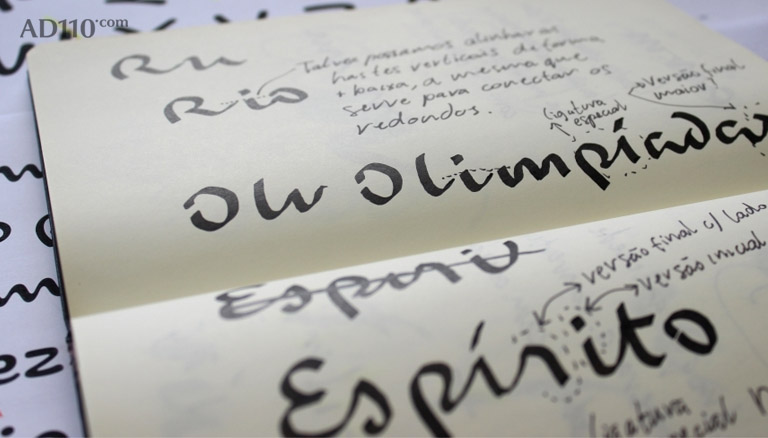 AD110.com
Ru
Rio
Talvez possamos alinhar as
hastes verticais de forma
+ baixa, a mesma que
serve para conectar os
redondos.
ligatura
especial
versão final
maior
Olu Olimpíadas
Espírit
versão final c/ lado
versão inicial
Espírito
ligatura
especial
ez